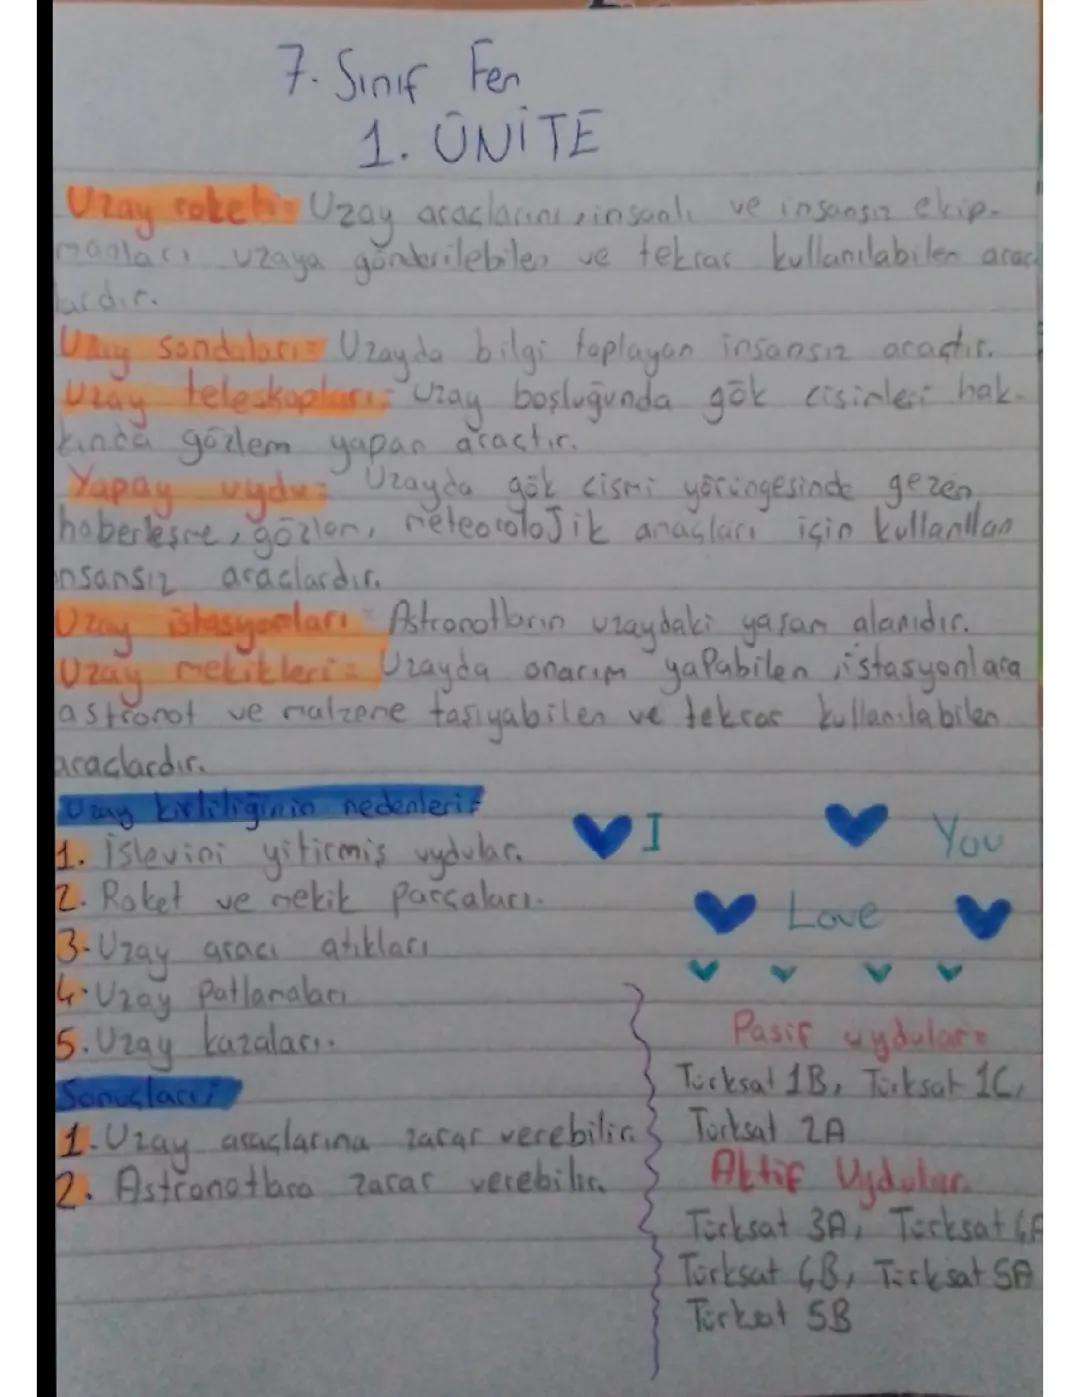 7. Sınıf Fen
1. ÜNİTE
Uzay roketi= Uzay araçlarını, insanlı ve insansız ekip-
manları uzaya gönderilebilen ve tekrar kullanılabilen araç
lardır.
Uzay sondaları= Uzayda bilgi toplayan insansız araçtır.
Uzay teleskopları= Uzay boşluğunda gök cisimleri hak-
kında gözlem yapan araçtır.
Yapay uydu= Uzayda gök cismi yörüngesinde gezen,
haberleşme, gözlem, meteorolojik amaçları için kullanılan
insansız araçlardır.
Uzay istasyonları= Astronotların uzaydaki yaşam alanıdır.
Uzay mekikleri= Uzayda onarım yapabilen, istasyonlara
astronot ve malzeme taşıyabilen ve tekrar kullanılabilen
araçlardır.
Uzay kirliliğinin nedenleri=
1. İşlevini yitirmiş uydular.
2. Roket ve mekik parçaları.
3- Uzay aracı atıkları
4- Uzay Patlamaları
5. Uzay kazaları.
Sonuçları;
1. Uzay araçlarına zarar verebilir.
2. Astronotlara zarar verebilir.
I You
Love
Pasif uydular=
Türksat 1B, Türksat 1C,
Türksat 2A
Aktif Uydular.
Türksat 3A, Türksat 4A
Türksat 4B, Türksat 5A
Türksat 5B